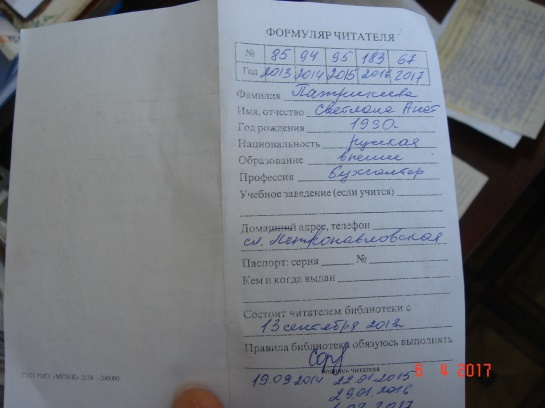 ФОРМУЛЯР ЧИТАТЕЛЯ
№ 85 94 95 183 67
Год 2013 2014 2015 2016 2017
Фамилия Патрикеева
Имя, отчество Светлана Анат
Год рождения 1990
Национальность русская
Образование высшее
Профессия бухгалтер
Учебное заведение (если учится)
Домашний адрес, телефон
сл. Петропавловская
Паспорт: серия № 
Кем и когда выдан
Состоит читателем библиотеки с
13 сентября 2013г
Правила библиотеки обязуюсь выполнять
подпись читателя
19.09.2014 22.01.2015
29.01.2016
2017
6 4 2017